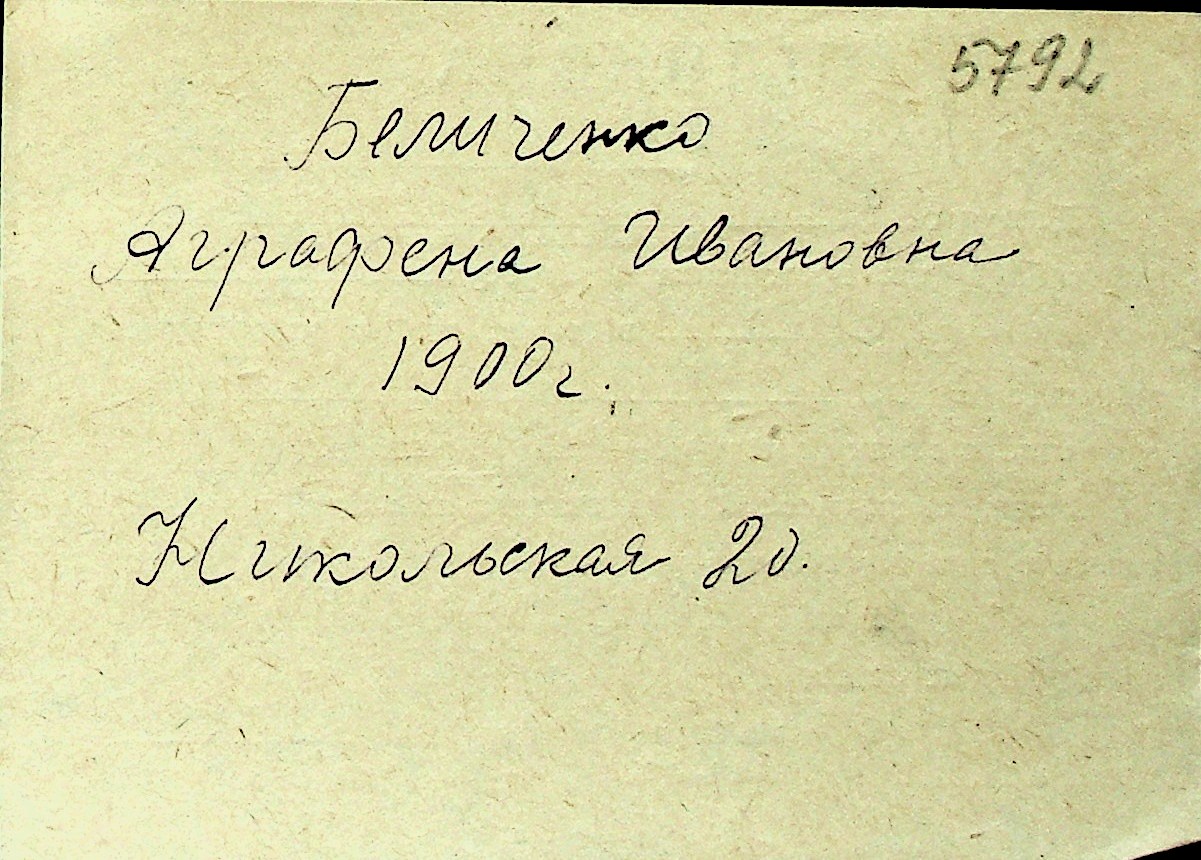 5792
Беличенко
Аграфена Ивановна
1900г.
Никольская 20.